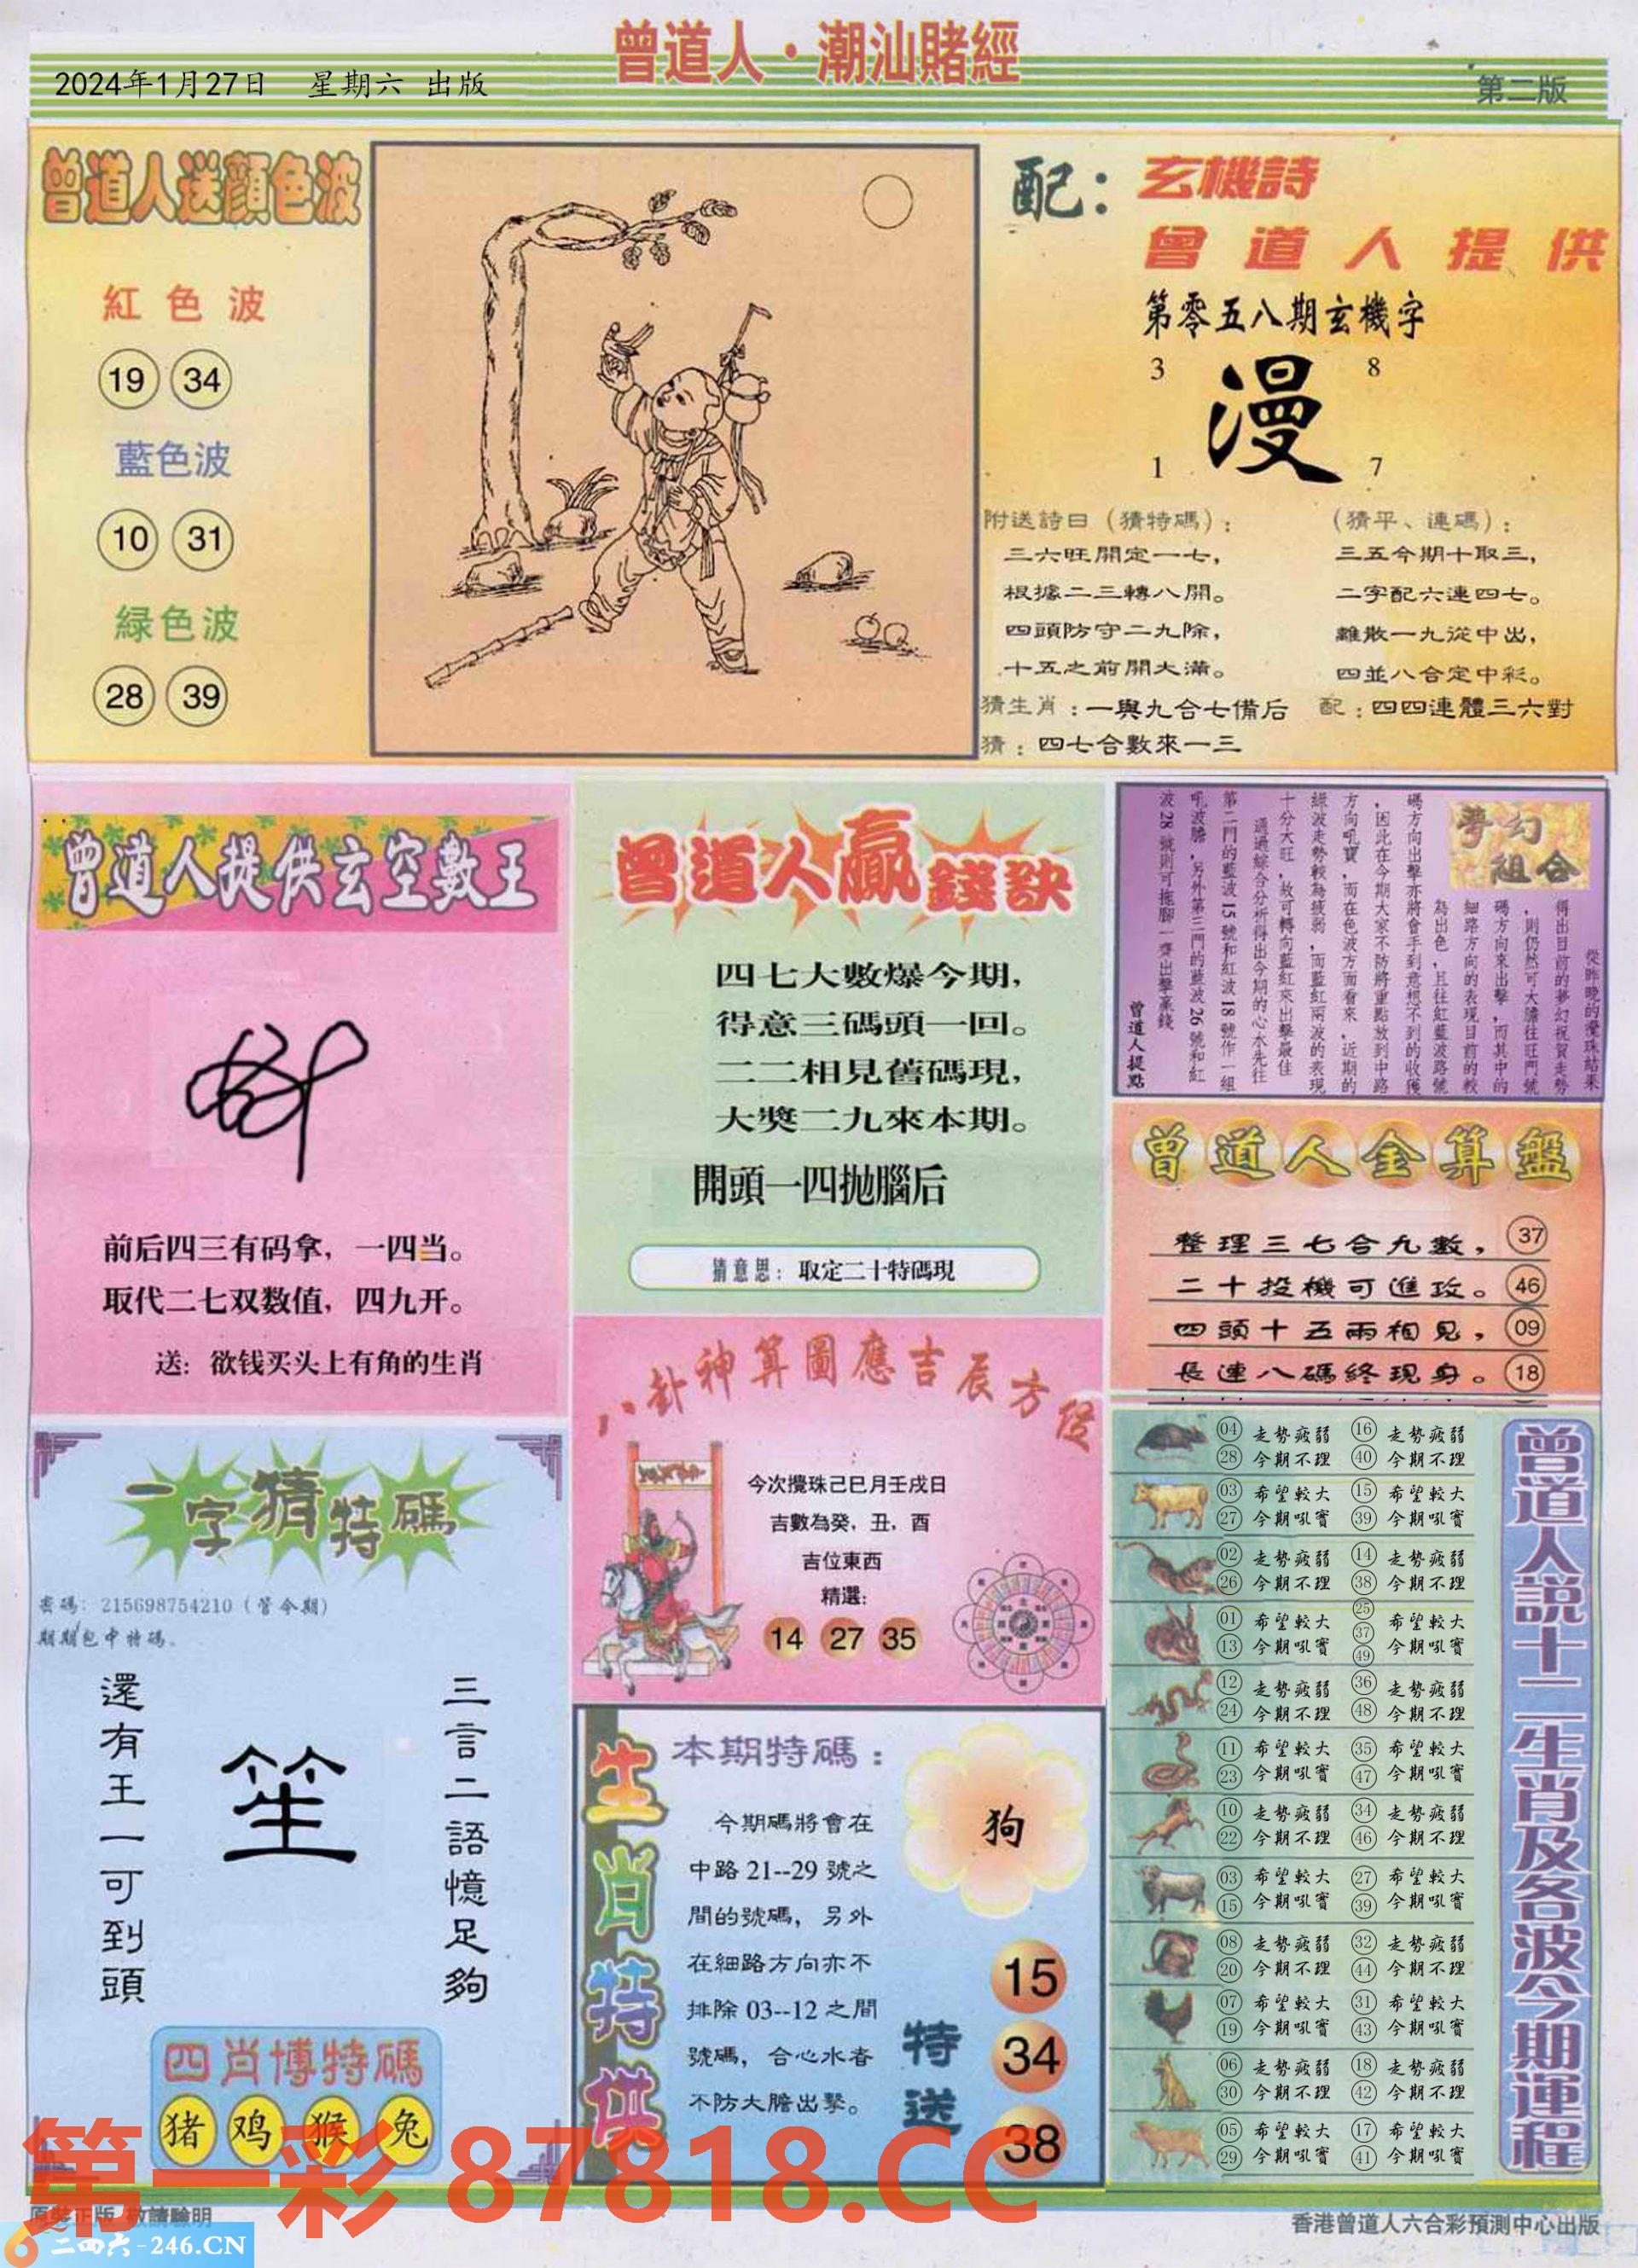 曾道人·潮汕賭經
2024年1月27日 星期六 出版
第二版
曾道人送顏色波
紅色波
19 34
藍色波
10 31
緑色波
28 39
配：玄機詩
曾道人提供
第零五八期玄機字
3 8
漫
1 7
附送詩曰（猜特碼）：
三六旺開定一七，
根據二三轉八開。
四頭防守二九除，
十五之前開大滿。
（猜平、連碼）：
三五今期十取三，
二字配六連四七。
離散一九從中出，
四並八合定中彩。
猜生肖：一與九合七備后
配：四四連體三六對
猜：四七合數來一三
曾道人提供玄空數王
前后四三有码拿，一四当。
取代二七双数值，四九开。
送：欲钱买头上有角的生肖
曾道人贏錢訣
四七大數爆今期，
得意三碼頭一回。
二二相見舊碼現，
大獎二九來本期。
開頭一四拋腦后
猜意思：取定二十特碼現
夢幻
組合
從昨晚的攪珠結果
得出目前的夢幻祝賀走勢
，則仍然可大膽往旺門號
碼方向來出擊，而其中的
細路方向的表現目前的較
為出色，且往紅藍波路號
碼方向出擊亦將會手到意想不到的收獲
，因此在今期大家不防將重點放到中路
方向吼寶，而在色波方面看來，近期的
綠波走勢較為疲弱，而藍紅兩波的表現
十分大旺，故可轉向藍紅來出擊最佳
通過綜合分析得出今期的心水先往
第二門的藍波15號和紅波18號作一組
吼波膽，另外第三門的藍波26號和紅
波28號則可拖腳一齊出擊贏錢
曾道人提點
曾道人金算盤
整理三七合九數，37
二十投機可進攻。46
四頭十五兩相見，09
長連八碼終現身。18
八卦神算圖應吉辰方位
今次攪珠己巳月壬戌日
吉數為癸，丑，酉
吉位東西
精選：
14 27 35
一字猜特碼
密碼：215698754210（管今期）
期期包中特碼。
三言二語憶足夠
笙
還有王一可到頭
四肖博特碼
猪 鸡 猴 兔
生肖特供
本期特碼：
今期碼將會在
中路21--29號之
間的號碼，另外
在細路方向亦不
排除03--12之間
號碼，合心水者
不防大膽出擊。
狗
特送
15
34
38
曾道人說十二生肖及各波今期運程
04 走勢疲弱 16 走勢疲弱
28 今期不理 40 今期不理
03 希望較大 15 希望較大
27 今期吼實 39 今期吼實
02 走勢疲弱 14 走勢疲弱
26 今期不理 38 今期不理
01 希望較大 25 37 希望較大
13 今期吼實 49 今期吼實
12 走勢疲弱 36 走勢疲弱
24 今期不理 48 今期不理
11 希望較大 35 希望較大
23 今期吼實 47 今期吼實
10 走勢疲弱 34 走勢疲弱
22 今期不理 46 今期不理
03 希望較大 27 希望較大
15 今期吼實 39 今期吼實
08 走勢疲弱 32 走勢疲弱
20 今期不理 44 今期不理
07 希望較大 31 希望較大
19 今期吼實 43 今期吼實
06 走勢疲弱 18 走勢疲弱
30 今期不理 42 今期不理
05 希望較大 17 希望較大
29 今期吼實 41 今期吼實
第一彩 87818.CC
原裝正版 敬請驗明
二四六-246.CN
香港曾道人六合彩預測中心出版